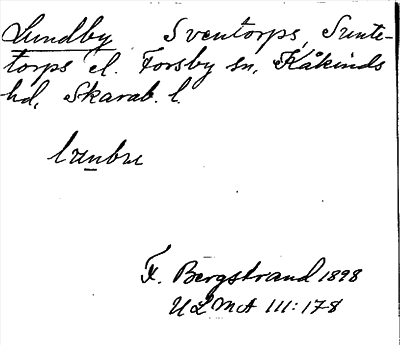 Lundby Sventorps, Sunte-
torps el. Forsby sn, Kåkinds
hd, Skarab. l.
F. Bergstrand 1898
ULMA 111:178